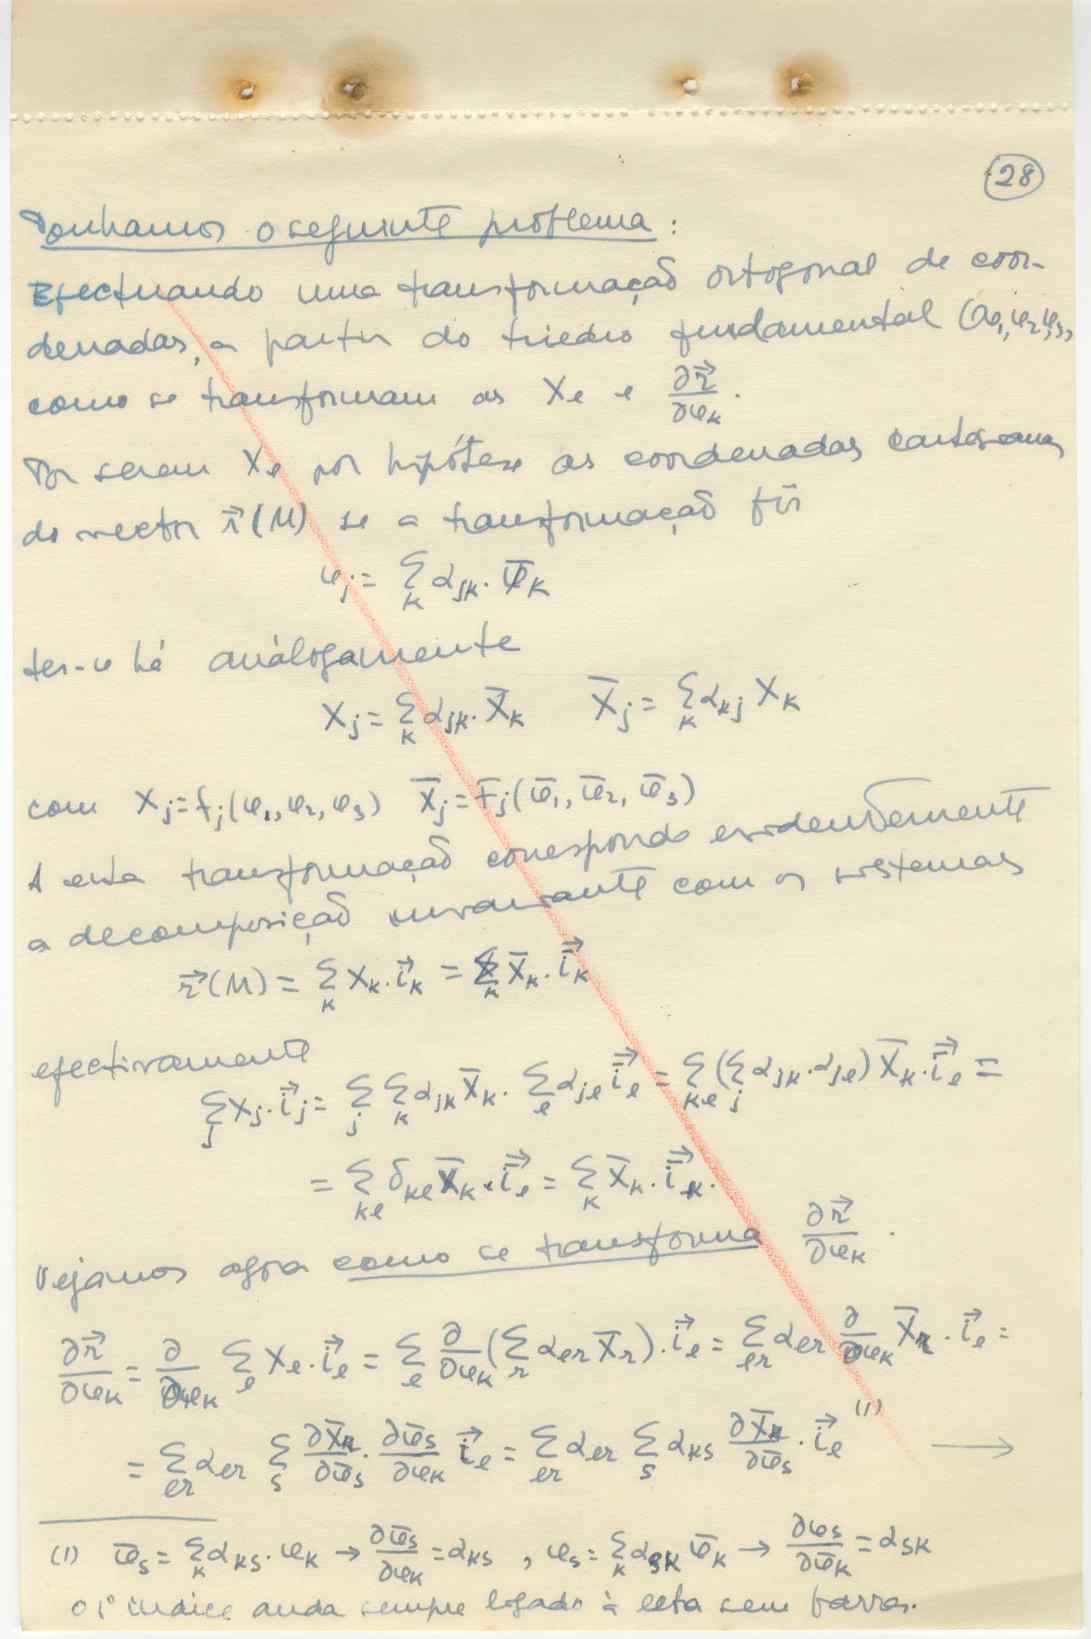 28
Ponhamos o seguinte problema :
Efectuando uma transformação ortogonal de coor-
denadas, a partir do triedro fundamental (O, φ₁, φ₂, φ₃),
como se transformam as Xₑ e ∂r⃗/∂φₖ.
Por serem Xₑ por hipótese as coordenadas cartesianas
do vector r⃗(M) se a transformação for
φⱼ = Σₖ αⱼₖ . φ̄ₖ
ter-se há análogamente
Xⱼ = Σₖ αⱼₖ . X̄ₖ   X̄ⱼ = Σₖ αₖⱼ Xₖ
com Xⱼ = fⱼ(φ₁, φ₂, φ₃)   X̄ⱼ = F̄ⱼ(φ̄₁, φ̄₂, φ̄₃)
A esta transformação corresponde evidentemente
a decomposição invariante com os sistemas
r⃗(M) = Σₖ Xₖ . i⃗ₖ = Σₖ X̄ₖ . ī⃗ₖ
efectivamente
Σⱼ Xⱼ . i⃗ⱼ = Σⱼ Σₖ αⱼₖ X̄ₖ . Σₑ αⱼₑ ī⃗ₑ = Σₖₑ (Σⱼ αⱼₖ . αⱼₑ) X̄ₖ . ī⃗ₑ =
= Σₖₑ δₖₑ X̄ₖ . ī⃗ₑ = Σₖ X̄ₖ . ī⃗ₖ .
Vejamos agora como se transforma ∂r⃗/∂φₖ .
∂r⃗/∂φₖ = ∂/∂φₖ Σₑ Xₑ . i⃗ₑ = Σₑ ∂/∂φₖ (Σᵣ αₑᵣ X̄ᵣ) . i⃗ₑ = Σₑᵣ αₑᵣ ∂/∂φₖ X̄ᵣ . i⃗ₑ =
= Σₑᵣ αₑᵣ Σₛ ∂X̄ᵣ/∂φ̄ₛ . ∂φ̄ₛ/∂φₖ i⃗ₑ = Σₑᵣ αₑᵣ Σₛ αₖₛ ∂X̄ᵣ/∂φ̄ₛ . i⃗ₑ (1) →
(1) φ̄ₛ = Σₖ αₖₛ . φₖ → ∂φ̄ₛ/∂φₖ = αₖₛ , φₛ = Σₖ αₛₖ φ̄ₖ → ∂φₛ/∂φ̄ₖ = αₛₖ
O 1º índice anda sempre ligado à letra sem barra.